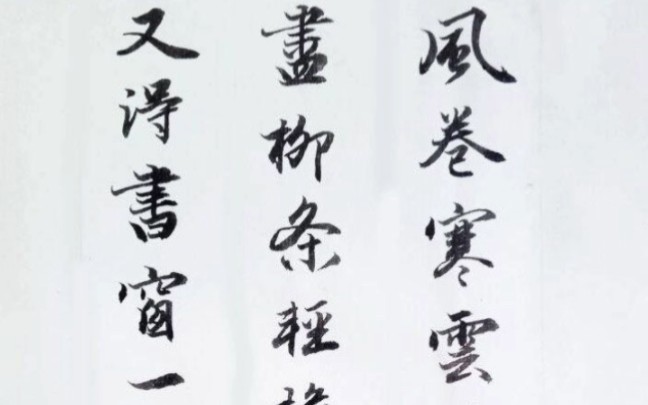 風卷寒雲
盡柳条輕
又得書窗一